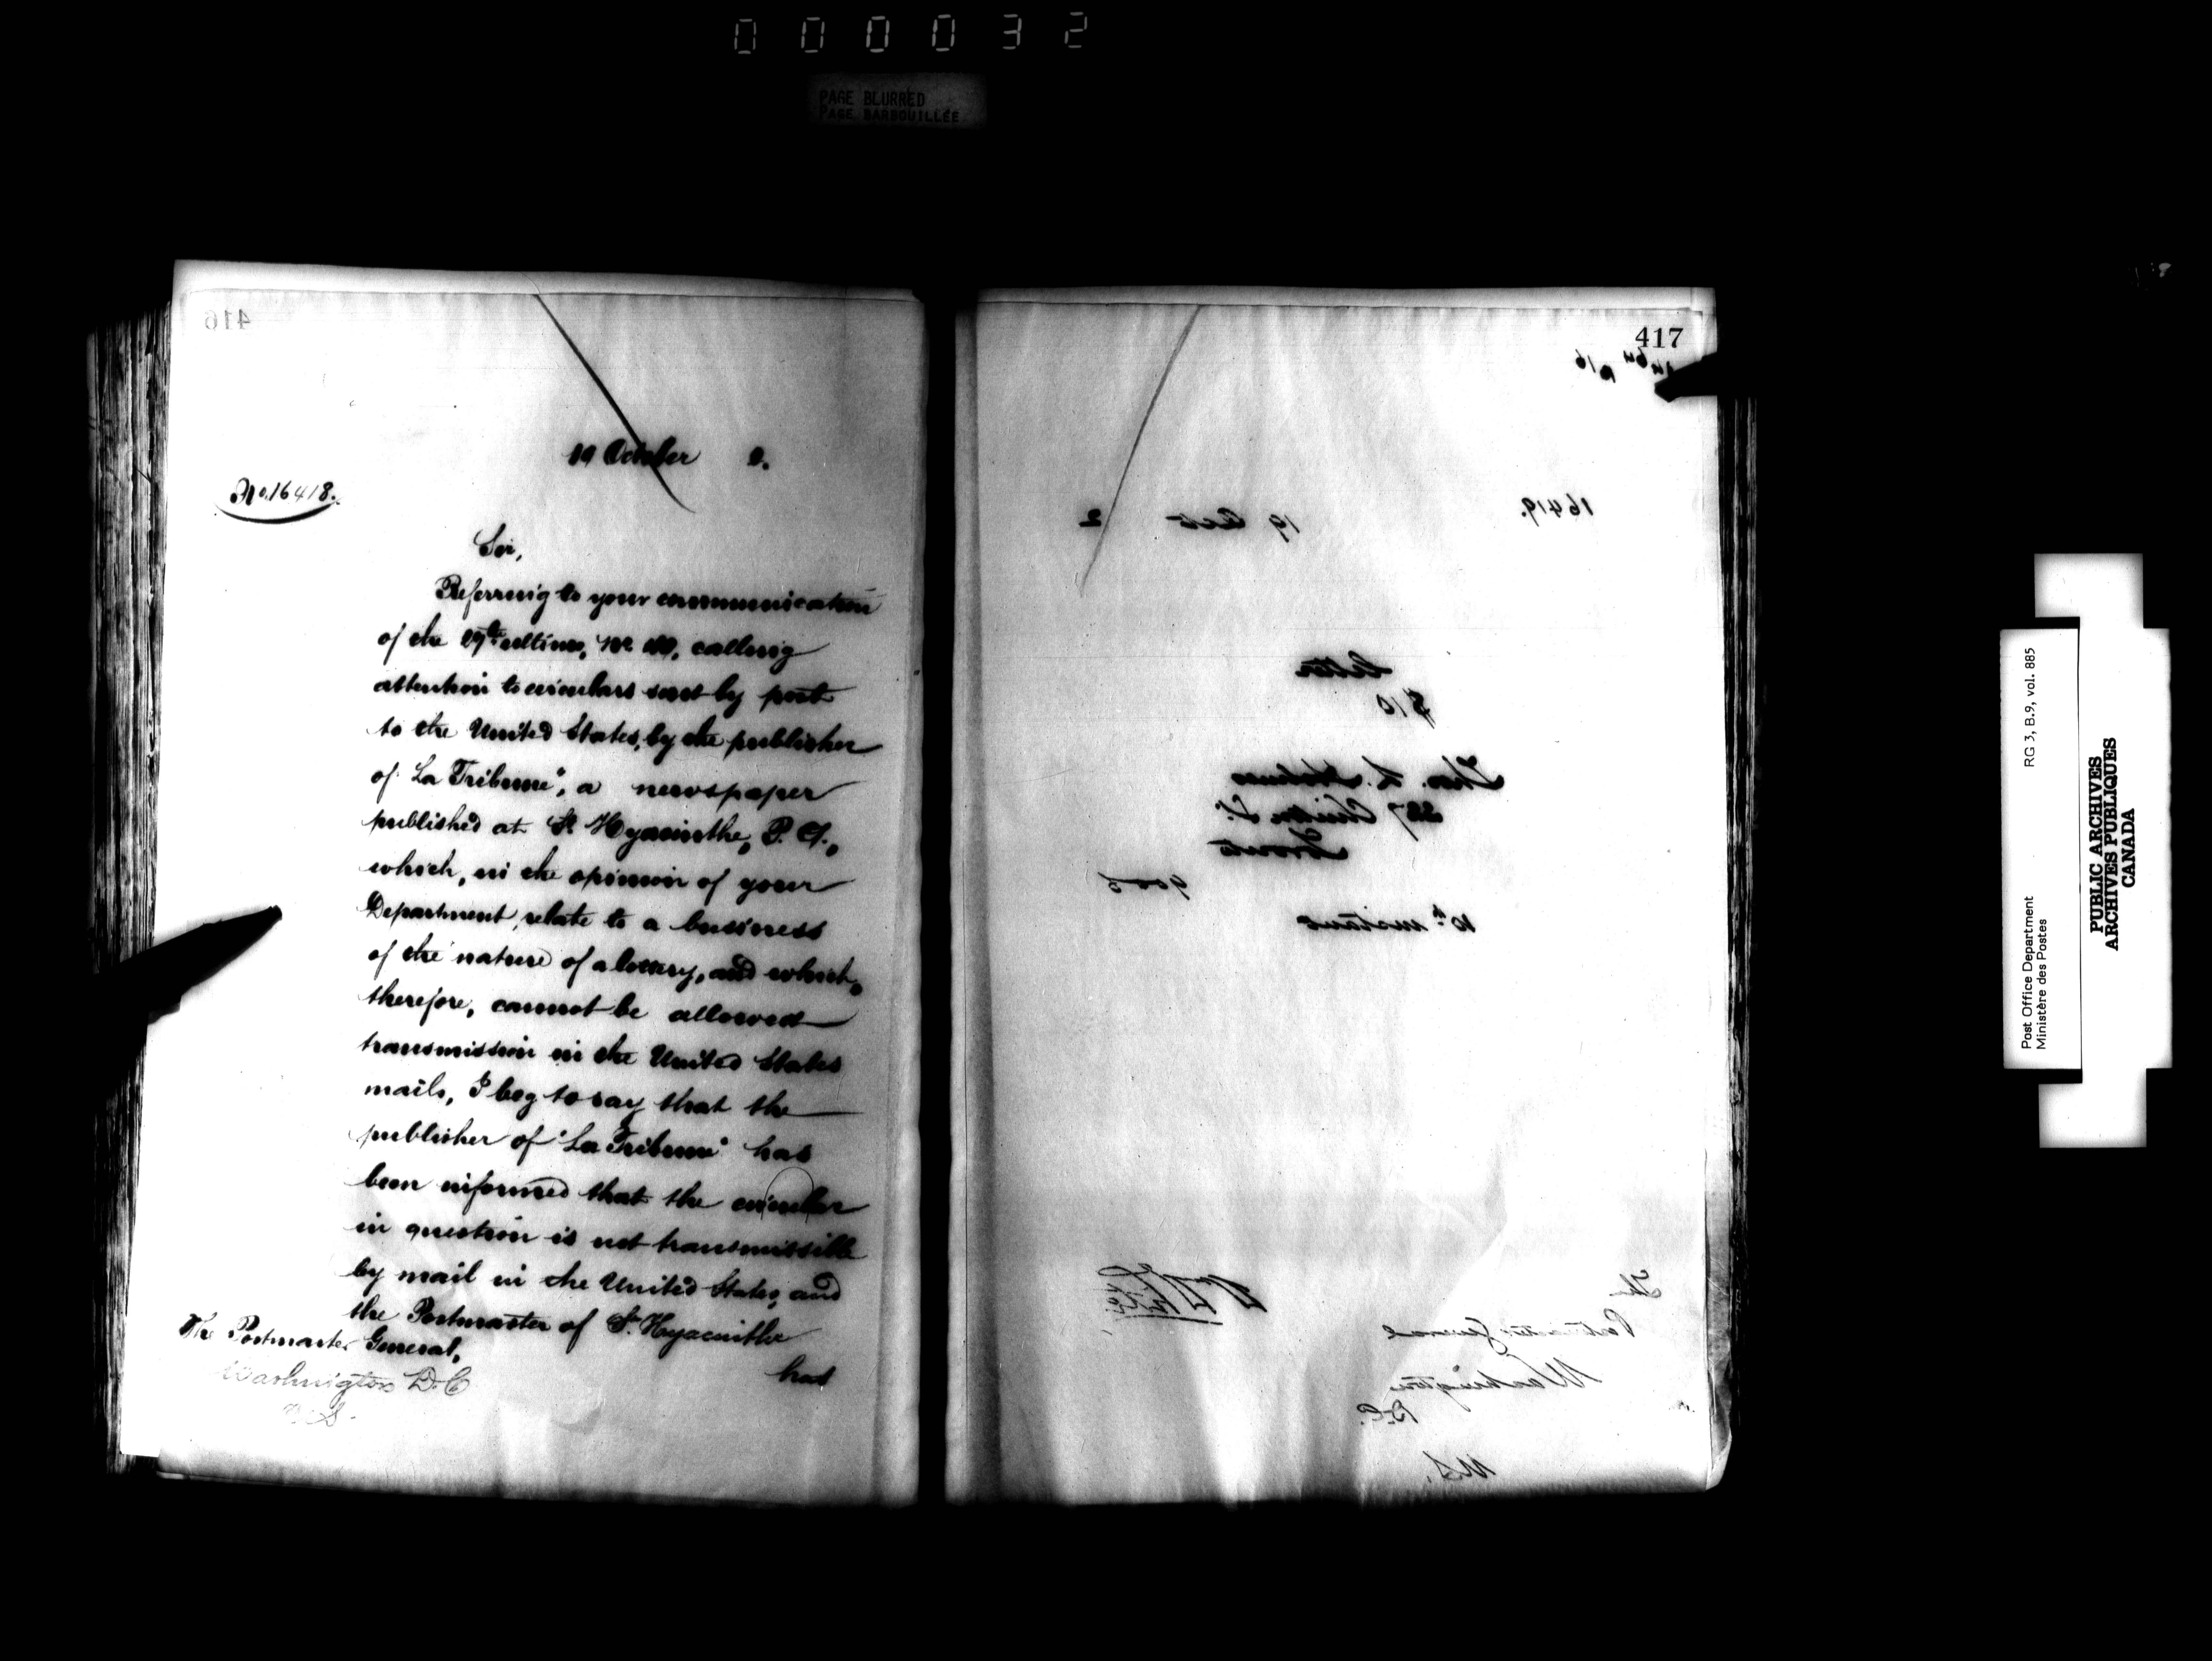 000032
PAGE BLURRED
PAGE BARBOUILLÉE
416
19 October 2.
No. 16418.
Sir,
Referring to your communication
of the ultimo, calling
attention to circulars sent by post
to the United States, by the publisher
of "La Tribune", a newspaper
published at St. Hyacinthe, P. Q.,
which, in the opinion of your
Department, relate to a business
of the nature of a lottery, and which,
therefore, cannot be allowed
transmission in the United States
mails, I beg to say that the
publisher of "La Tribune" has
been informed that the circular
in question is not transmissible
by mail in the United States, and
the Postmaster of St. Hyacinthe
has
The Postmaster General,
Washington D.C
U.S.
417
16419. 19 Oct 2
Letter
$10
Thos.
Toronto
10th instant
The
Postmaster General
Washington
D.C.
U.S.
Post Office Department
Ministère des Postes
RG 3, B.9, vol. 885
PUBLIC ARCHIVES
ARCHIVES PUBLIQUES
CANADA